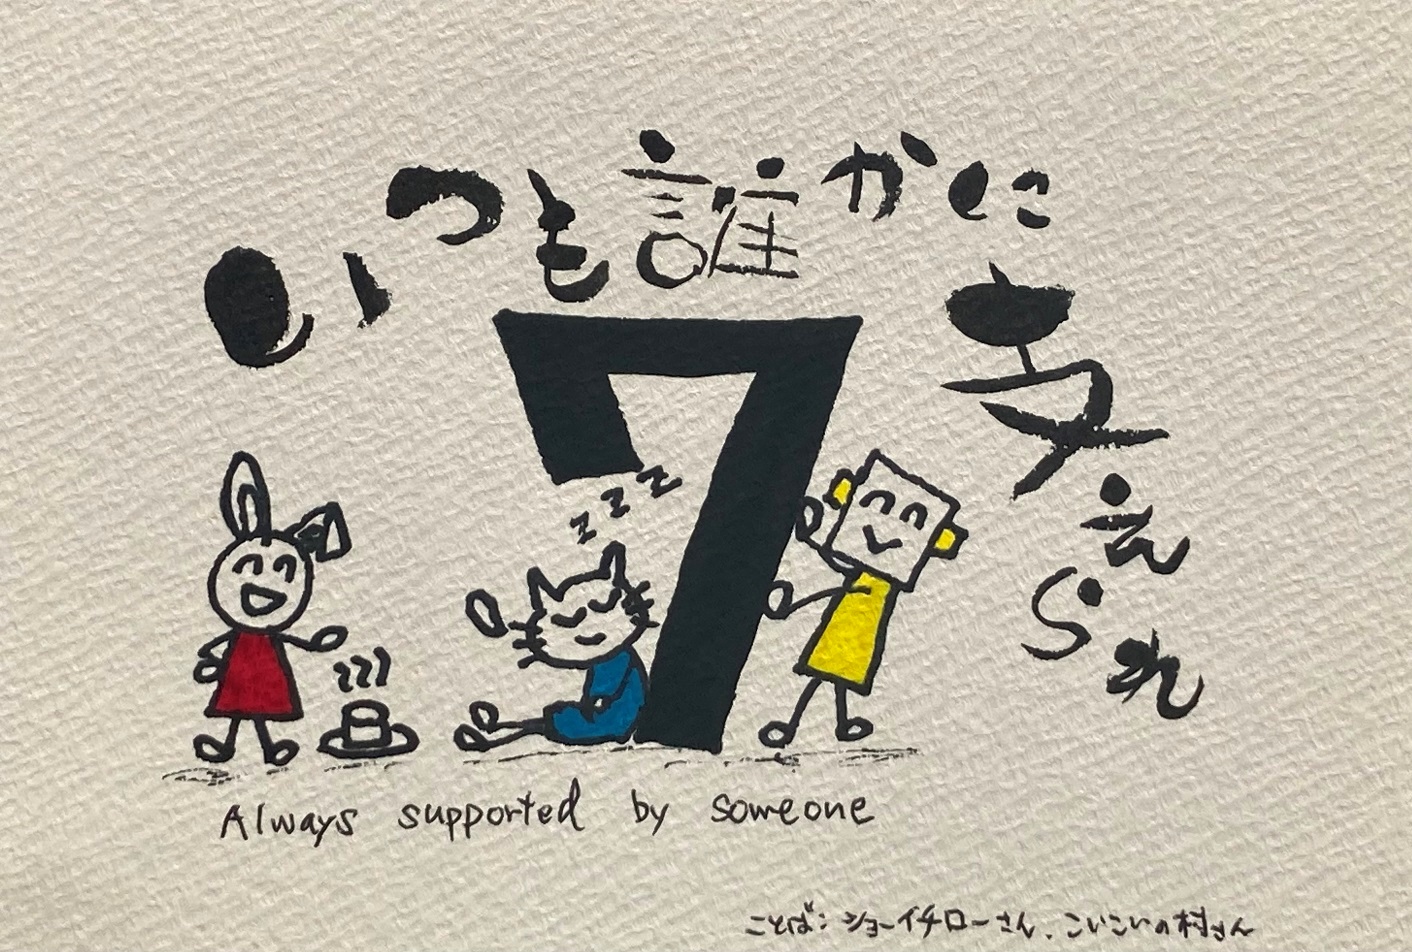 いつも誰かに支えられ
7
zzz
Always supported by someone
ことば:ショーイチローさん、こいこいの村さん